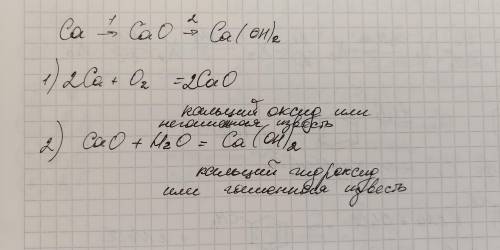 Ca →¹ CaO →² Ca(OH)₂
1) 2Ca + O₂ = 2CaO
кальций оксид или
негашеная известь
2) CaO + H₂O = Ca(OH)₂
кальций гидроксид
или гашенная известь